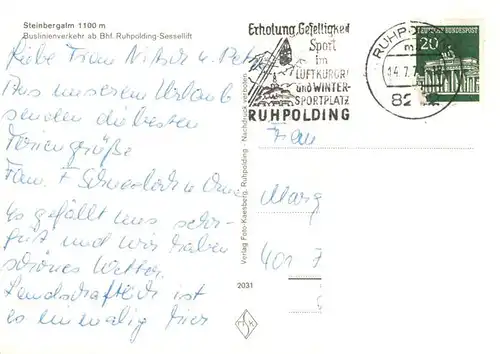 Steinbergalm 1100 m
Buslinienverkehr ab Bhf. Ruhpolding-Sessellift
Liebe Frau Nitzer u. Petra
Aus unserem Urlaub
senden die besten
Feriengrüße
Fam. F
Es gefällt uns sehr
gut und wir haben
schönes Wetter.
Landschaftlich ist
es einmalig hier
Verlag Foto-Kaesberg, Ruhpolding - Nachdruck verboten
2031
Erholung, Geselligkeit
Sport
im
LUFTKURORT
und WINTER-
SPORTPLATZ
RUHPOLDING
RUHP
14.7.7
82
DEUTSCHE BUNDESPOST
20
Frau
Marg
401